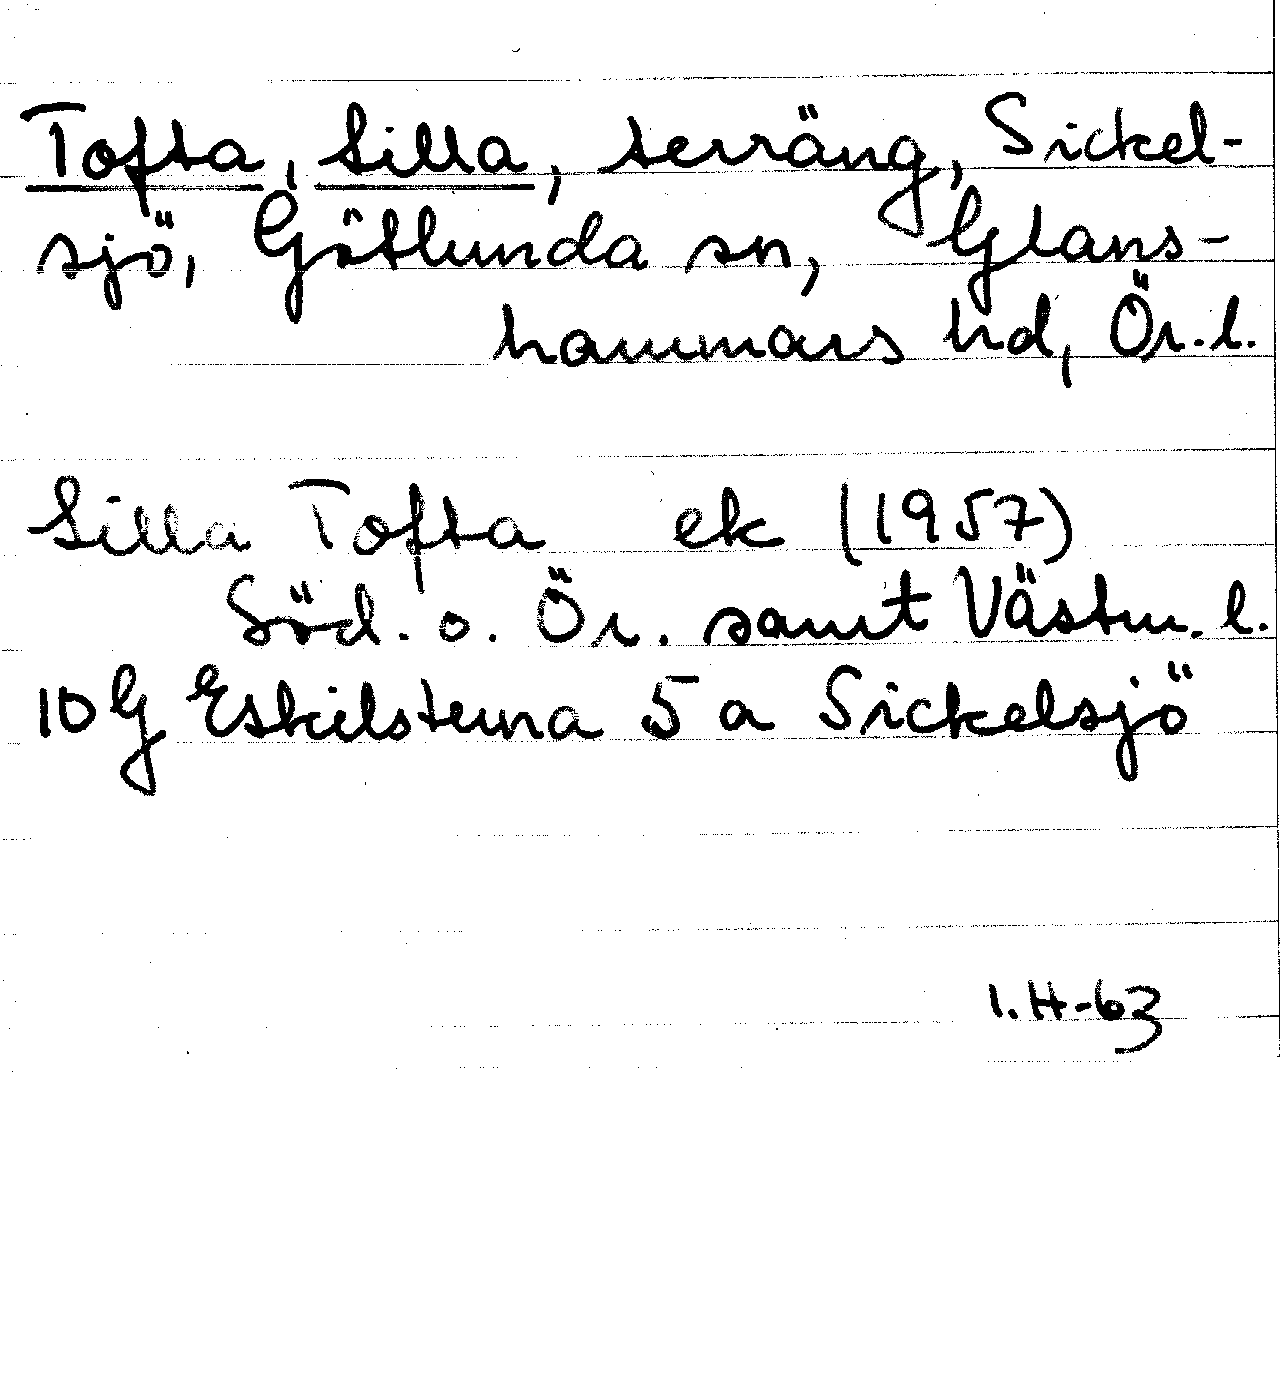 Tofta, Lilla, terräng, Sickel-
sjö, Götlunda sn, Glans-
hammars hd, Ör. l.
Lilla Tofta ek (1957)
Söd. o. Ör. samt Västm. l.
10 G Eskilstuna 5 a Sickelsjö
I.H-63